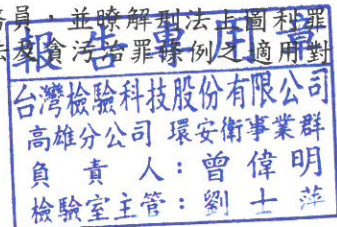 務員，並瞭解刑法上圖利罪
法及貪污治罪條例之適用對
報告專用章
台灣檢驗科技股份有限公司
高雄分公司 環安衛事業群
負責人：曾偉明
檢驗室主管：劉士萍